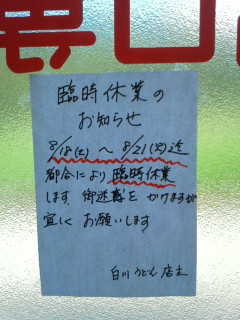 臨時休業の
お知らせ
8/18(土)〜8/21(火)迄
都合により臨時休業
します 御迷惑をかけますが
宜しくお願いします
白川うどん店主